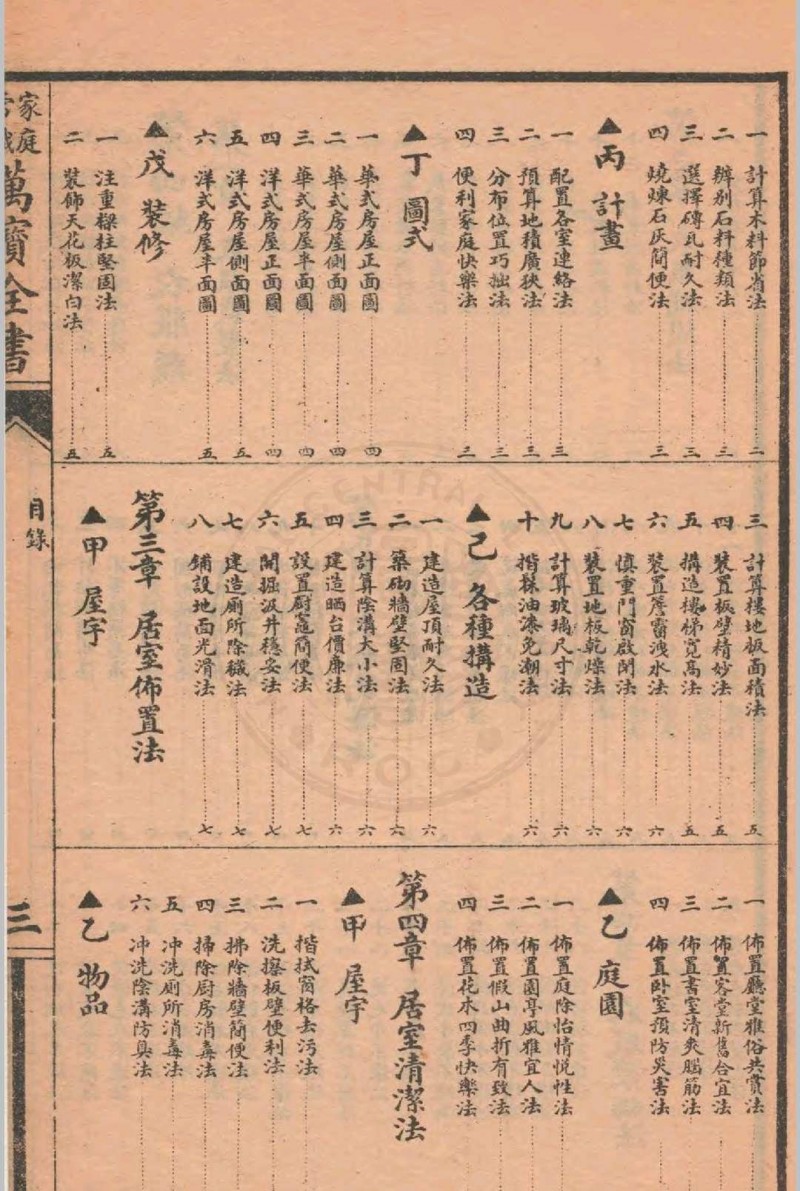 一 計算木料節省法 二
二 辨别石料種類法 三
三 選擇磚瓦耐久法 三
四 燒煉石灰簡便法 三
▲丙 計畫
一 配置各室連絡法 三
二 預算地積廣狹法 三
三 分布位置巧拙法 三
四 便利家庭快樂法 三
▲丁 圖式
一 華式房屋正面圖 四
二 華式房屋側面圖 四
三 華式房屋平面圖 四
四 洋式房屋正面圖 四
五 洋式房屋側面圖 五
六 洋式房屋平面圖 五
▲戊 裝修
一 注重樑柱堅固法 五
二 裝飾天花板潔白法 五
三 計算樓地板面積法 五
四 裝置板壁精妙法 五
五 搆造樓梯寬高法 五
六 裝置簷霤洩水法 六
七 慎重門窗啟閉法 六
八 裝置地板乾燥法 六
九 計算玻璃尺寸法 六
十 揩搽油漆免潮法 六
▲己 各種搆造
一 建造屋頂耐久法 六
二 築砌牆壁堅固法 六
三 計算陰溝大小法 六
四 建造晒台價廉法 六
五 設置廚竈簡便法 七
六 開掘汲井穩妥法 七
七 建造廁所除穢法 七
八 鋪設地面光滑法 七
第三章 居室佈置法
▲甲 屋宇
一 佈置廳堂雅俗共賞法
二 佈置客堂新舊合宜法
三 佈置書室清爽腦筋法
四 佈置卧室預防災害法
▲乙 庭園
一 佈置庭除怡情悅性法
二 佈置園亭風雅宜人法
三 佈置假山曲折有致法
四 佈置花木四季快樂法
第四章 居室清潔法
▲甲 屋宇
一 揩拭窗格去污法
二 洗擦板壁便利法
三 拂除牆壁簡便法
四 掃除厨房消毒法
五 冲洗廁所消毒法
六 冲洗陰溝防臭法
▲乙 物品
家庭
萬寶全書
目錄
三